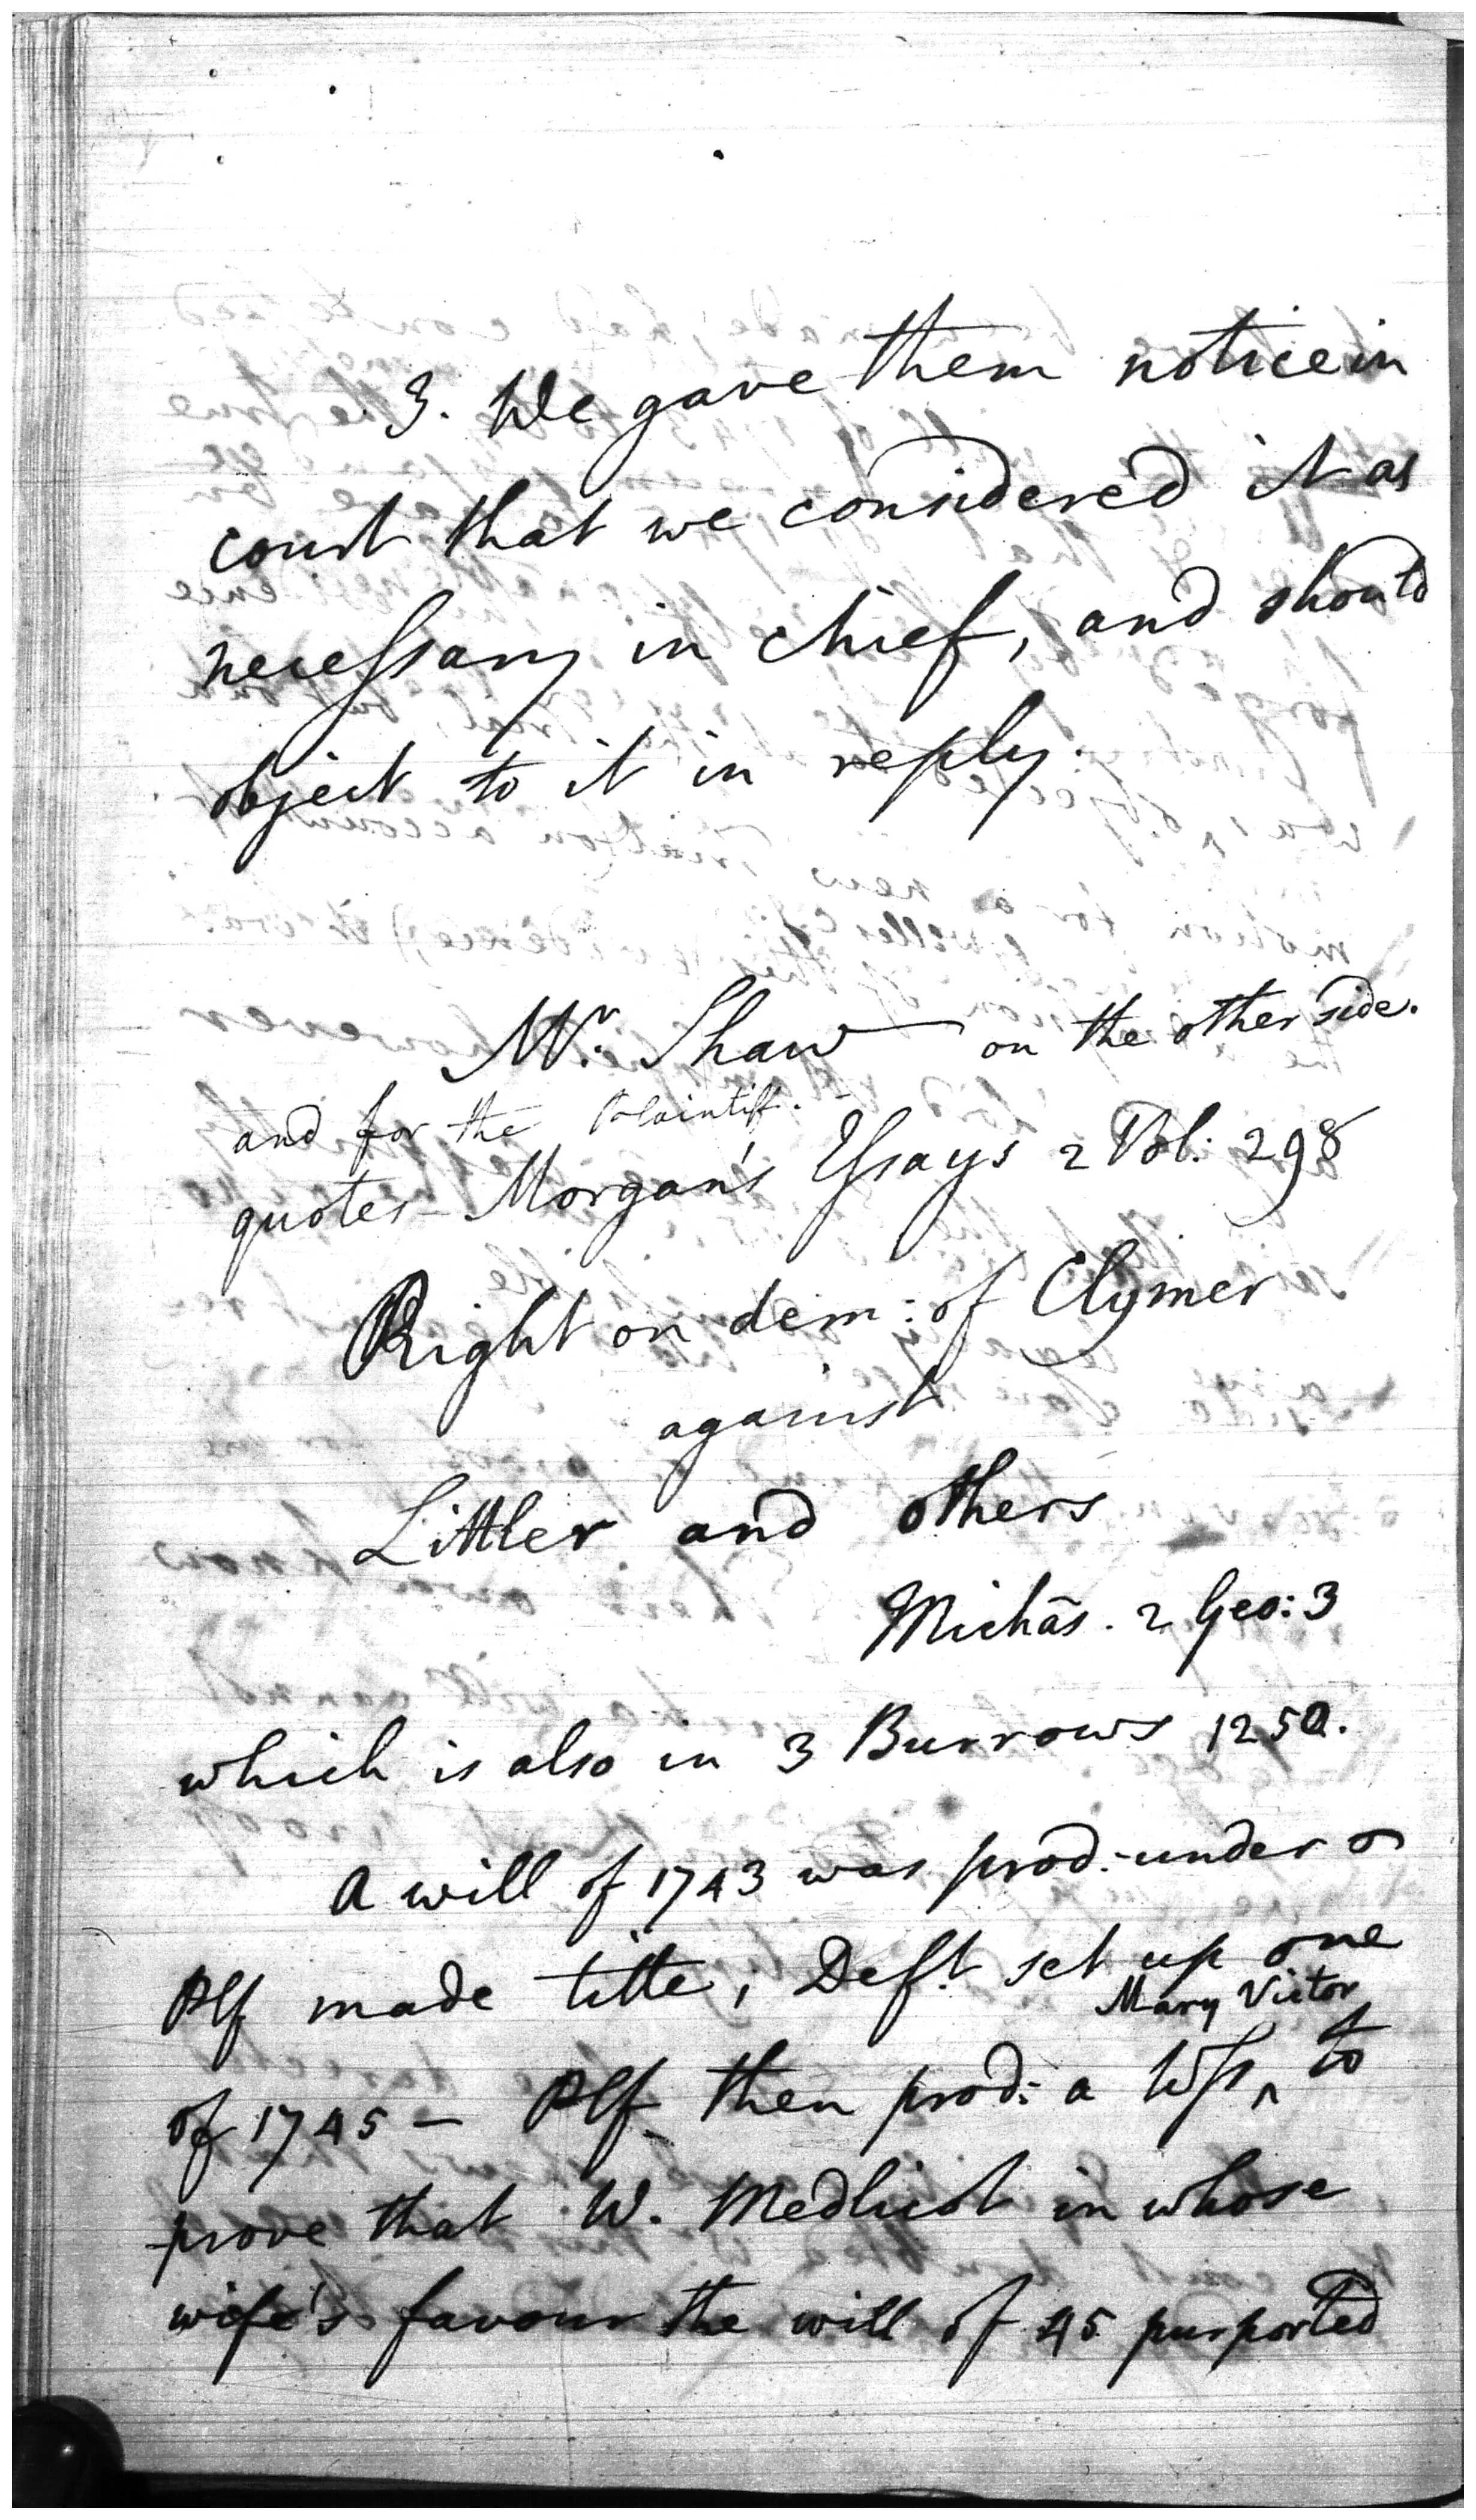 3. We gave them notice in
court that we considered it as
necessary in chief, and should
object to it in reply.
Mr. Shaw on the other side.
and for the Plaintiff.
quotes - Morgan's Essays 2 Vol: 298
Right on dem: of Clymer
against
Littler and others
Michās. 2 Geo: 3
which is also in 3 Burrows 1250.
A will of 1743 was prod: under
Plf made title, Deft. set up one
of 1745 - Plf then prod: a Wss ‸ Mary Victor to
prove that W. Medlicot in whose
wife's favour the will of 45 purported